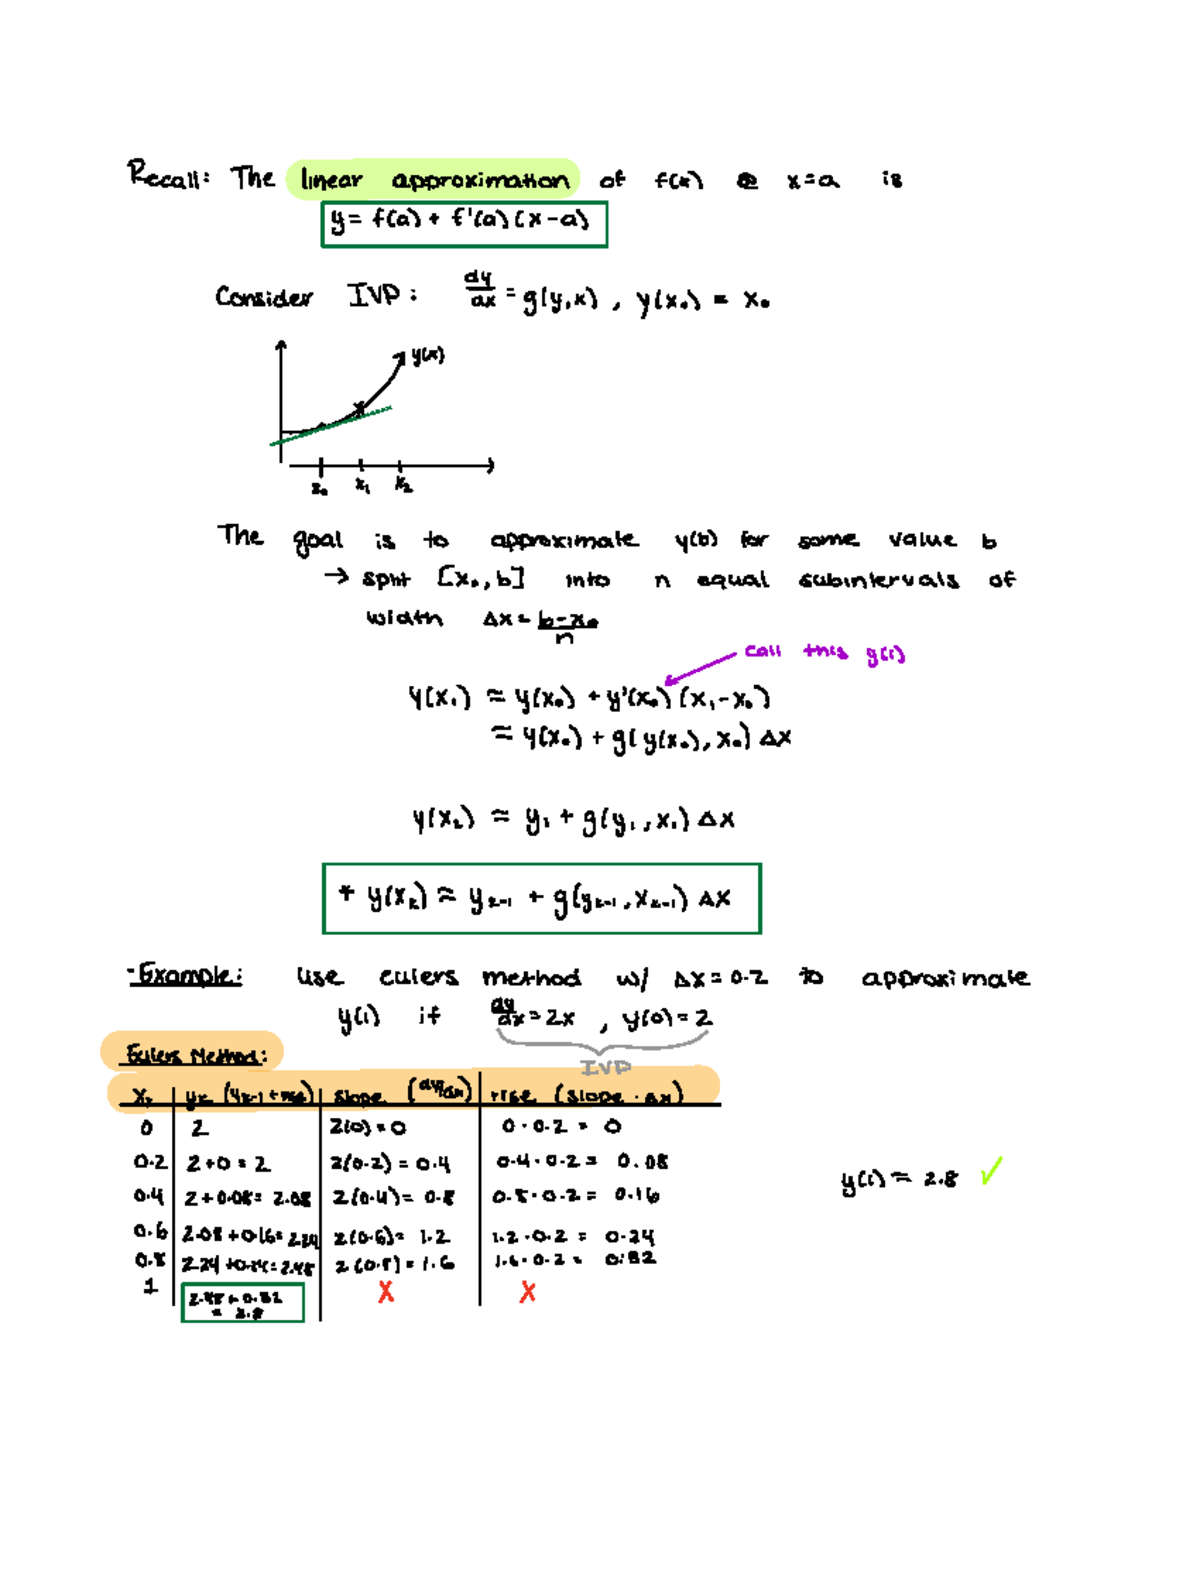 Recall: The linear approximation of f(x) @ x=a is
y= f(a) + f'(a)(x-a)
Consider IVP: dy/dx = g(y,x) , y(x₀) = x₀
y(x)
x₀ x₁ x₂
The goal is to approximate y(b) for some value b
→ split [x₀, b] into n equal subintervals of
width Δx = b-x₀/n
call this y(1)
y(x₁) ≈ y(x₀) + y'(x₀)(x₁-x₀)
≈ y(x₀) + g(y(x₀), x₀) Δx
y(x₂) ≈ y₁ + g(y₁, x₁) Δx
* y(x₂) ≈ y₂₋₁ + g(y₂₋₁, x₂₋₁) Δx
-Example: use eulers method w/ Δx = 0.2 to approximate
y(1) if dy/dx = 2x , y(0) = 2
IVP
Eulers Method:
Xₖ yₖ (yₖ₋₁ + rise) slope (dy/dx) rise (slope · Δx)
0 2 2(0) = 0 0 · 0.2 = 0
0.2 2+0 = 2 2(0.2) = 0.4 0.4 · 0.2 = 0.08
0.4 2+0.08 = 2.08 2(0.4) = 0.8 0.8 · 0.2 = 0.16
0.6 2.08+0.16 = 2.24 2(0.6) = 1.2 1.2 · 0.2 = 0.24
0.8 2.24+0.24 = 2.48 2(0.8) = 1.6 1.6 · 0.2 = 0.32
1 2.48+0.32 X X
= 2.8
y(1) ≈ 2.8 ✓